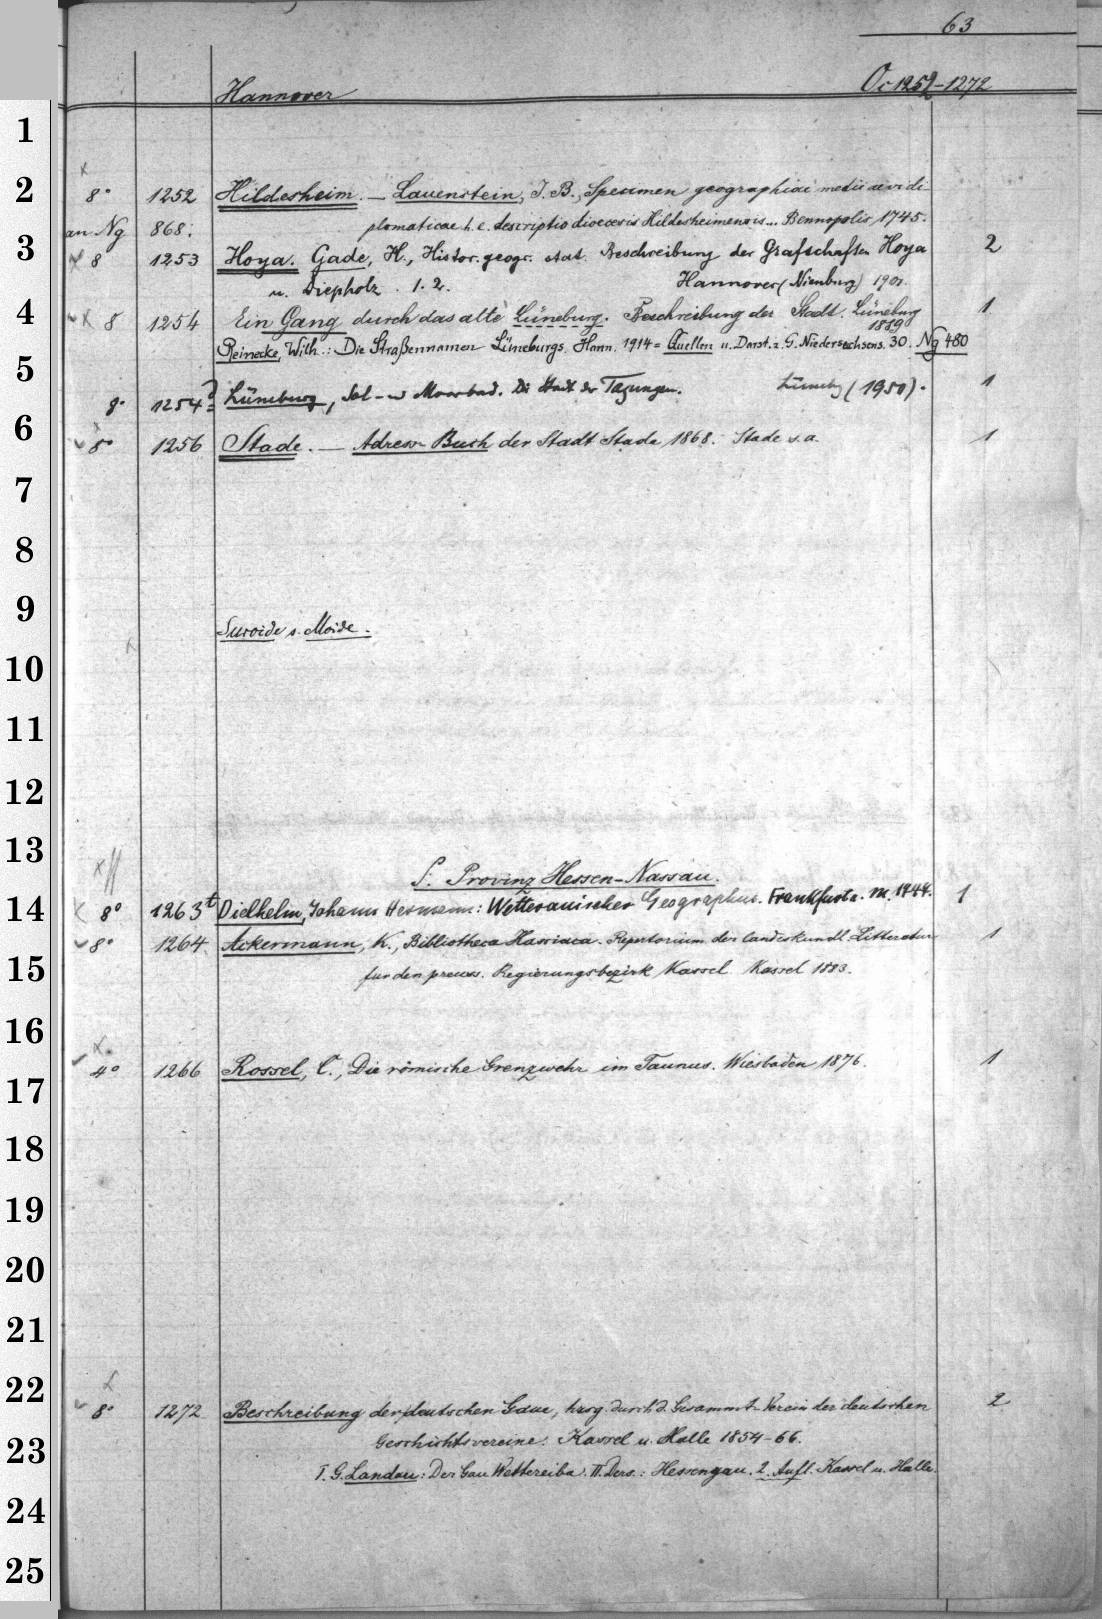 63
Hannover Oc 1252-1272
8° 1252 Hildesheim. — Lauenstein, J. B., Specimen geographiae medii aevi di
an Ng 868. plomaticae h. e. descriptio dioecesis Hildesheimensis... Bennopolis 1745.
8 1253 Hoya. Gade, H., Histor. geogr. stat. Beschreibung der Grafschaften Hoya 2
u. Diepholz. 1. 2. Hannover (Nienburg) 1901.
8 1254 Ein Gang durch das alte Lüneburg. Beschreibung der Stadt. Lüneburg 1
Reinecke, Wilh.: Die Straßennamen Lüneburgs. Hann. 1914 = Quellen u. Darst. z. G. Niedersachsens. 30. Ng 480
8° 1254 Lüneburg, Sol- u Moorbad. Die Stadt der Tagungen. Lüneby (1950). 1
8° 1256 Stade. — Adress-Buch der Stadt Stade 1868. Stade s. a. 1
Suroide s. Moide.
f. Provinz Hessen-Nassau.
8° 1263t Dielhelm, Johann Hermann: Wetterauischer Geographus. Frankfurt a. M. 1747. 1
8° 1264 Ackermann, K., Bibliotheca Hassiaca. Repertorium der landeskundl. Litteratur 1
für den preuss. Regierungsbezirk Kassel Kassel 1883.
4° 1266 Rossel, C., Die römische Grenzwehr im Taunus. Wiesbaden 1876. 1
8° 1272 Beschreibung der deutschen Gaue, hrsg. durch d. Gesammt-Verein der deutschen 2
Geschichtsvereine. Kassel u. Halle 1854-66.
I. G. Landau: Der Gau Wettereiba. II. Ders.: Hessengau. 2. Aufl. Kassel u. Halle.
1
2
3
4
5
6
7
8
9
10
11
12
13
14
15
16
17
18
19
20
21
22
23
24
25